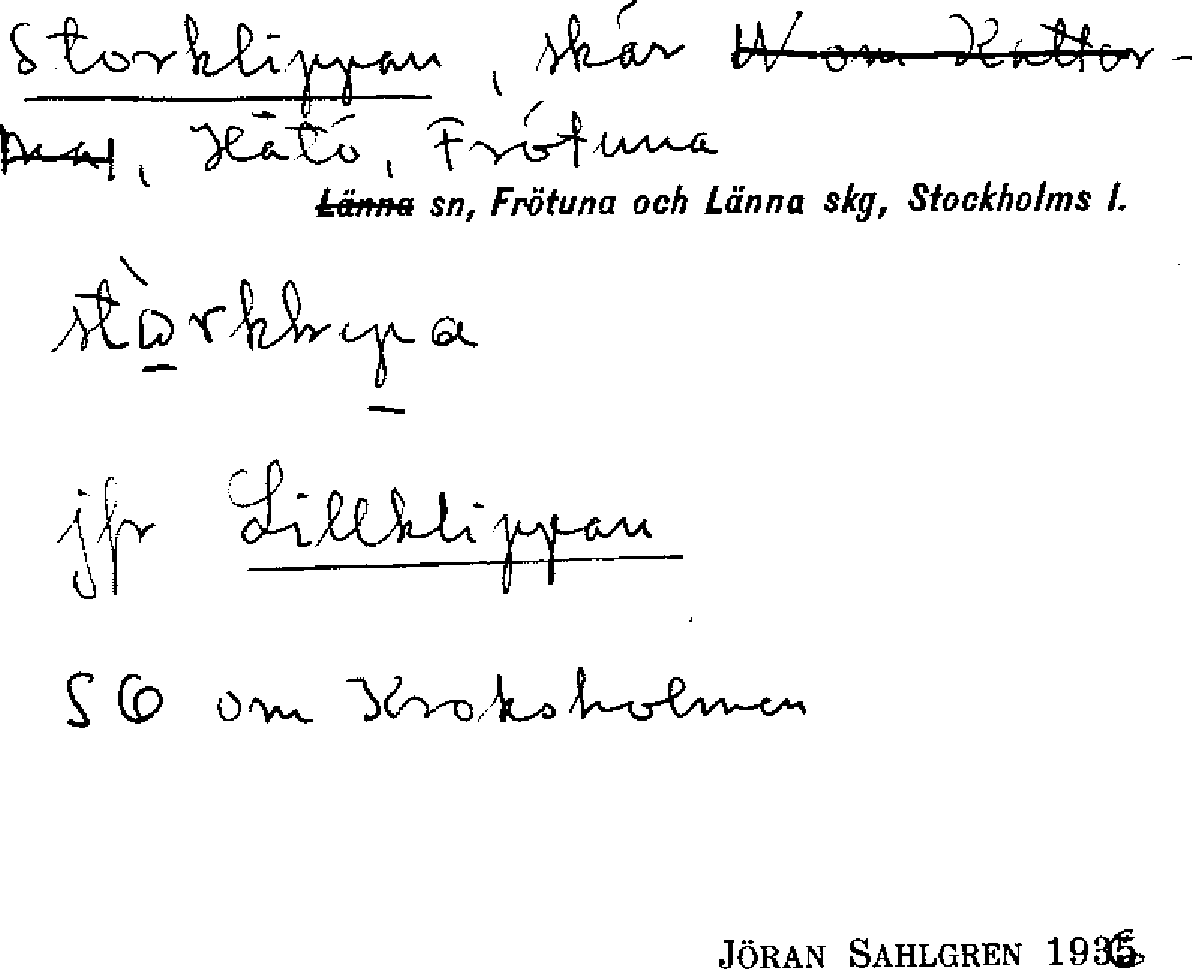 Storklippan, skär ~~W om Kattor-~~
, Hätö, Frötuna
~~Länna~~ sn, Frötuna och Länna skg, Stockholms l.
jfr Lillklippan
SO om Kroksholmen
JÖRAN SAHLGREN 1936